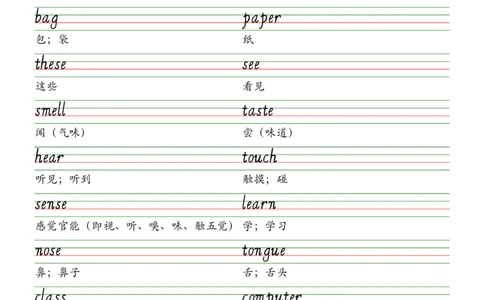 bag paper
包；袋 纸
these see
这些 看见
smell taste
闻（气味） 尝（味道）
hear touch
听见；听到 触摸；碰
sense learn
感觉官能（即视、听、嗅、味、触五觉） 学；学习
nose tongue
鼻；鼻子 舌；舌头
class computer